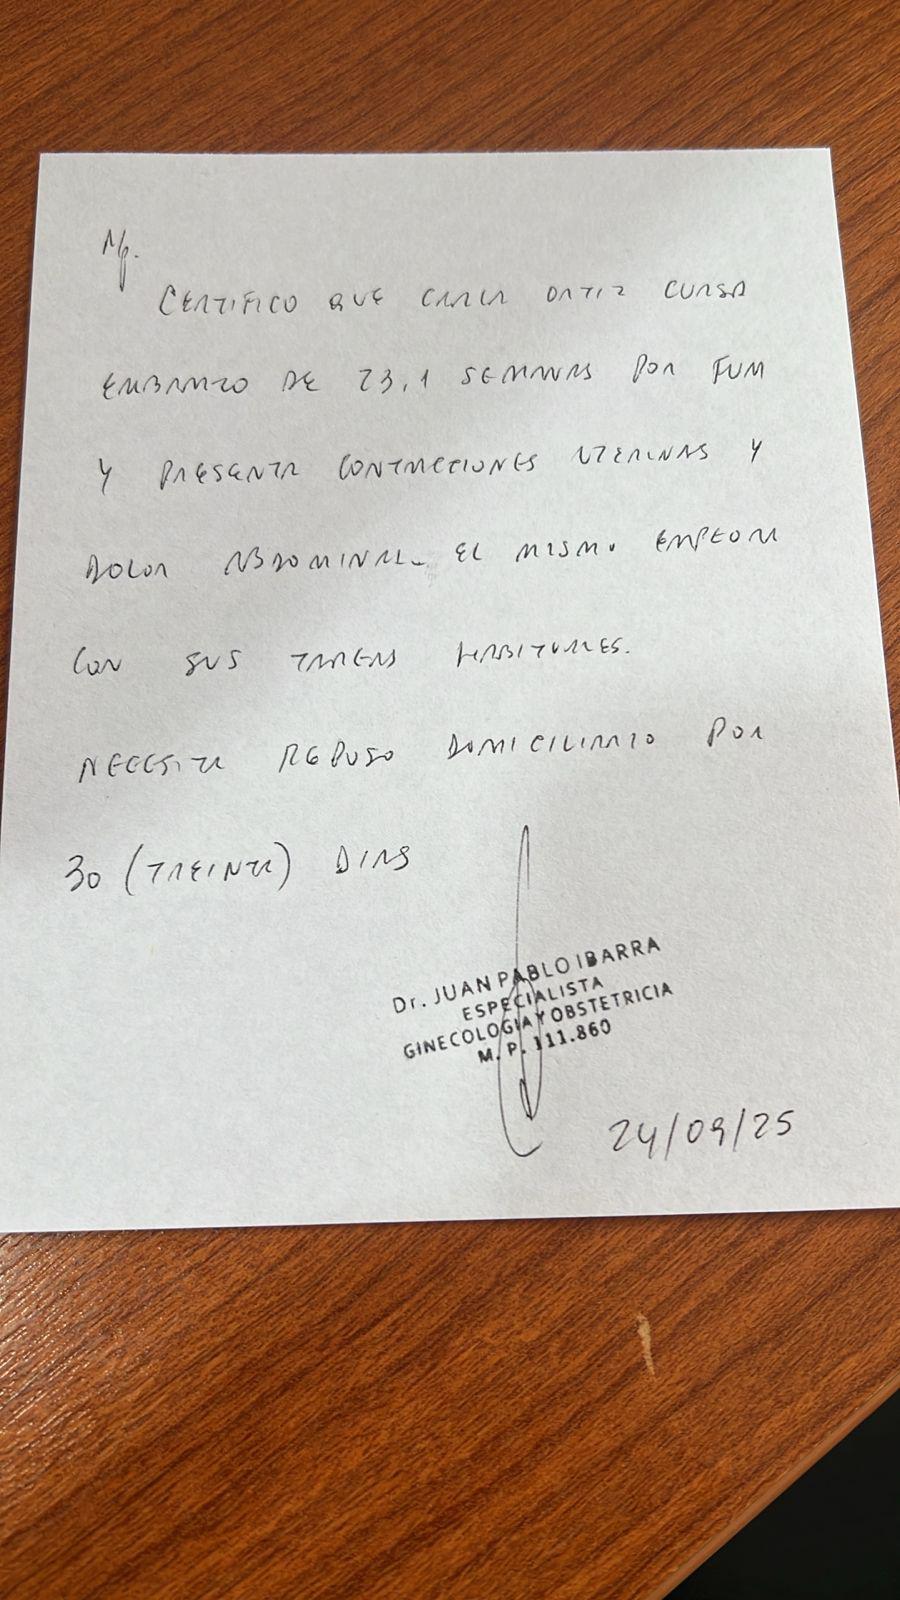 Rp.
CERTIFICO QUE CARLA ORTIZ CURSA
EMBARAZO DE 23,1 SEMANAS POR FUM
Y PRESENTA CONTRACCIONES UTERINAS Y
DOLOR ABDOMINAL. EL MISMO EMPEORA
CON SUS TAREAS HABITUALES.
NECESITA REPOSO DOMICILIARIO POR
30 (TREINTA) DIAS
Dr. JUAN PABLO IBARRA
ESPECIALISTA
GINECOLOGIA Y OBSTETRICIA
M. P. 111.860
24/09/25